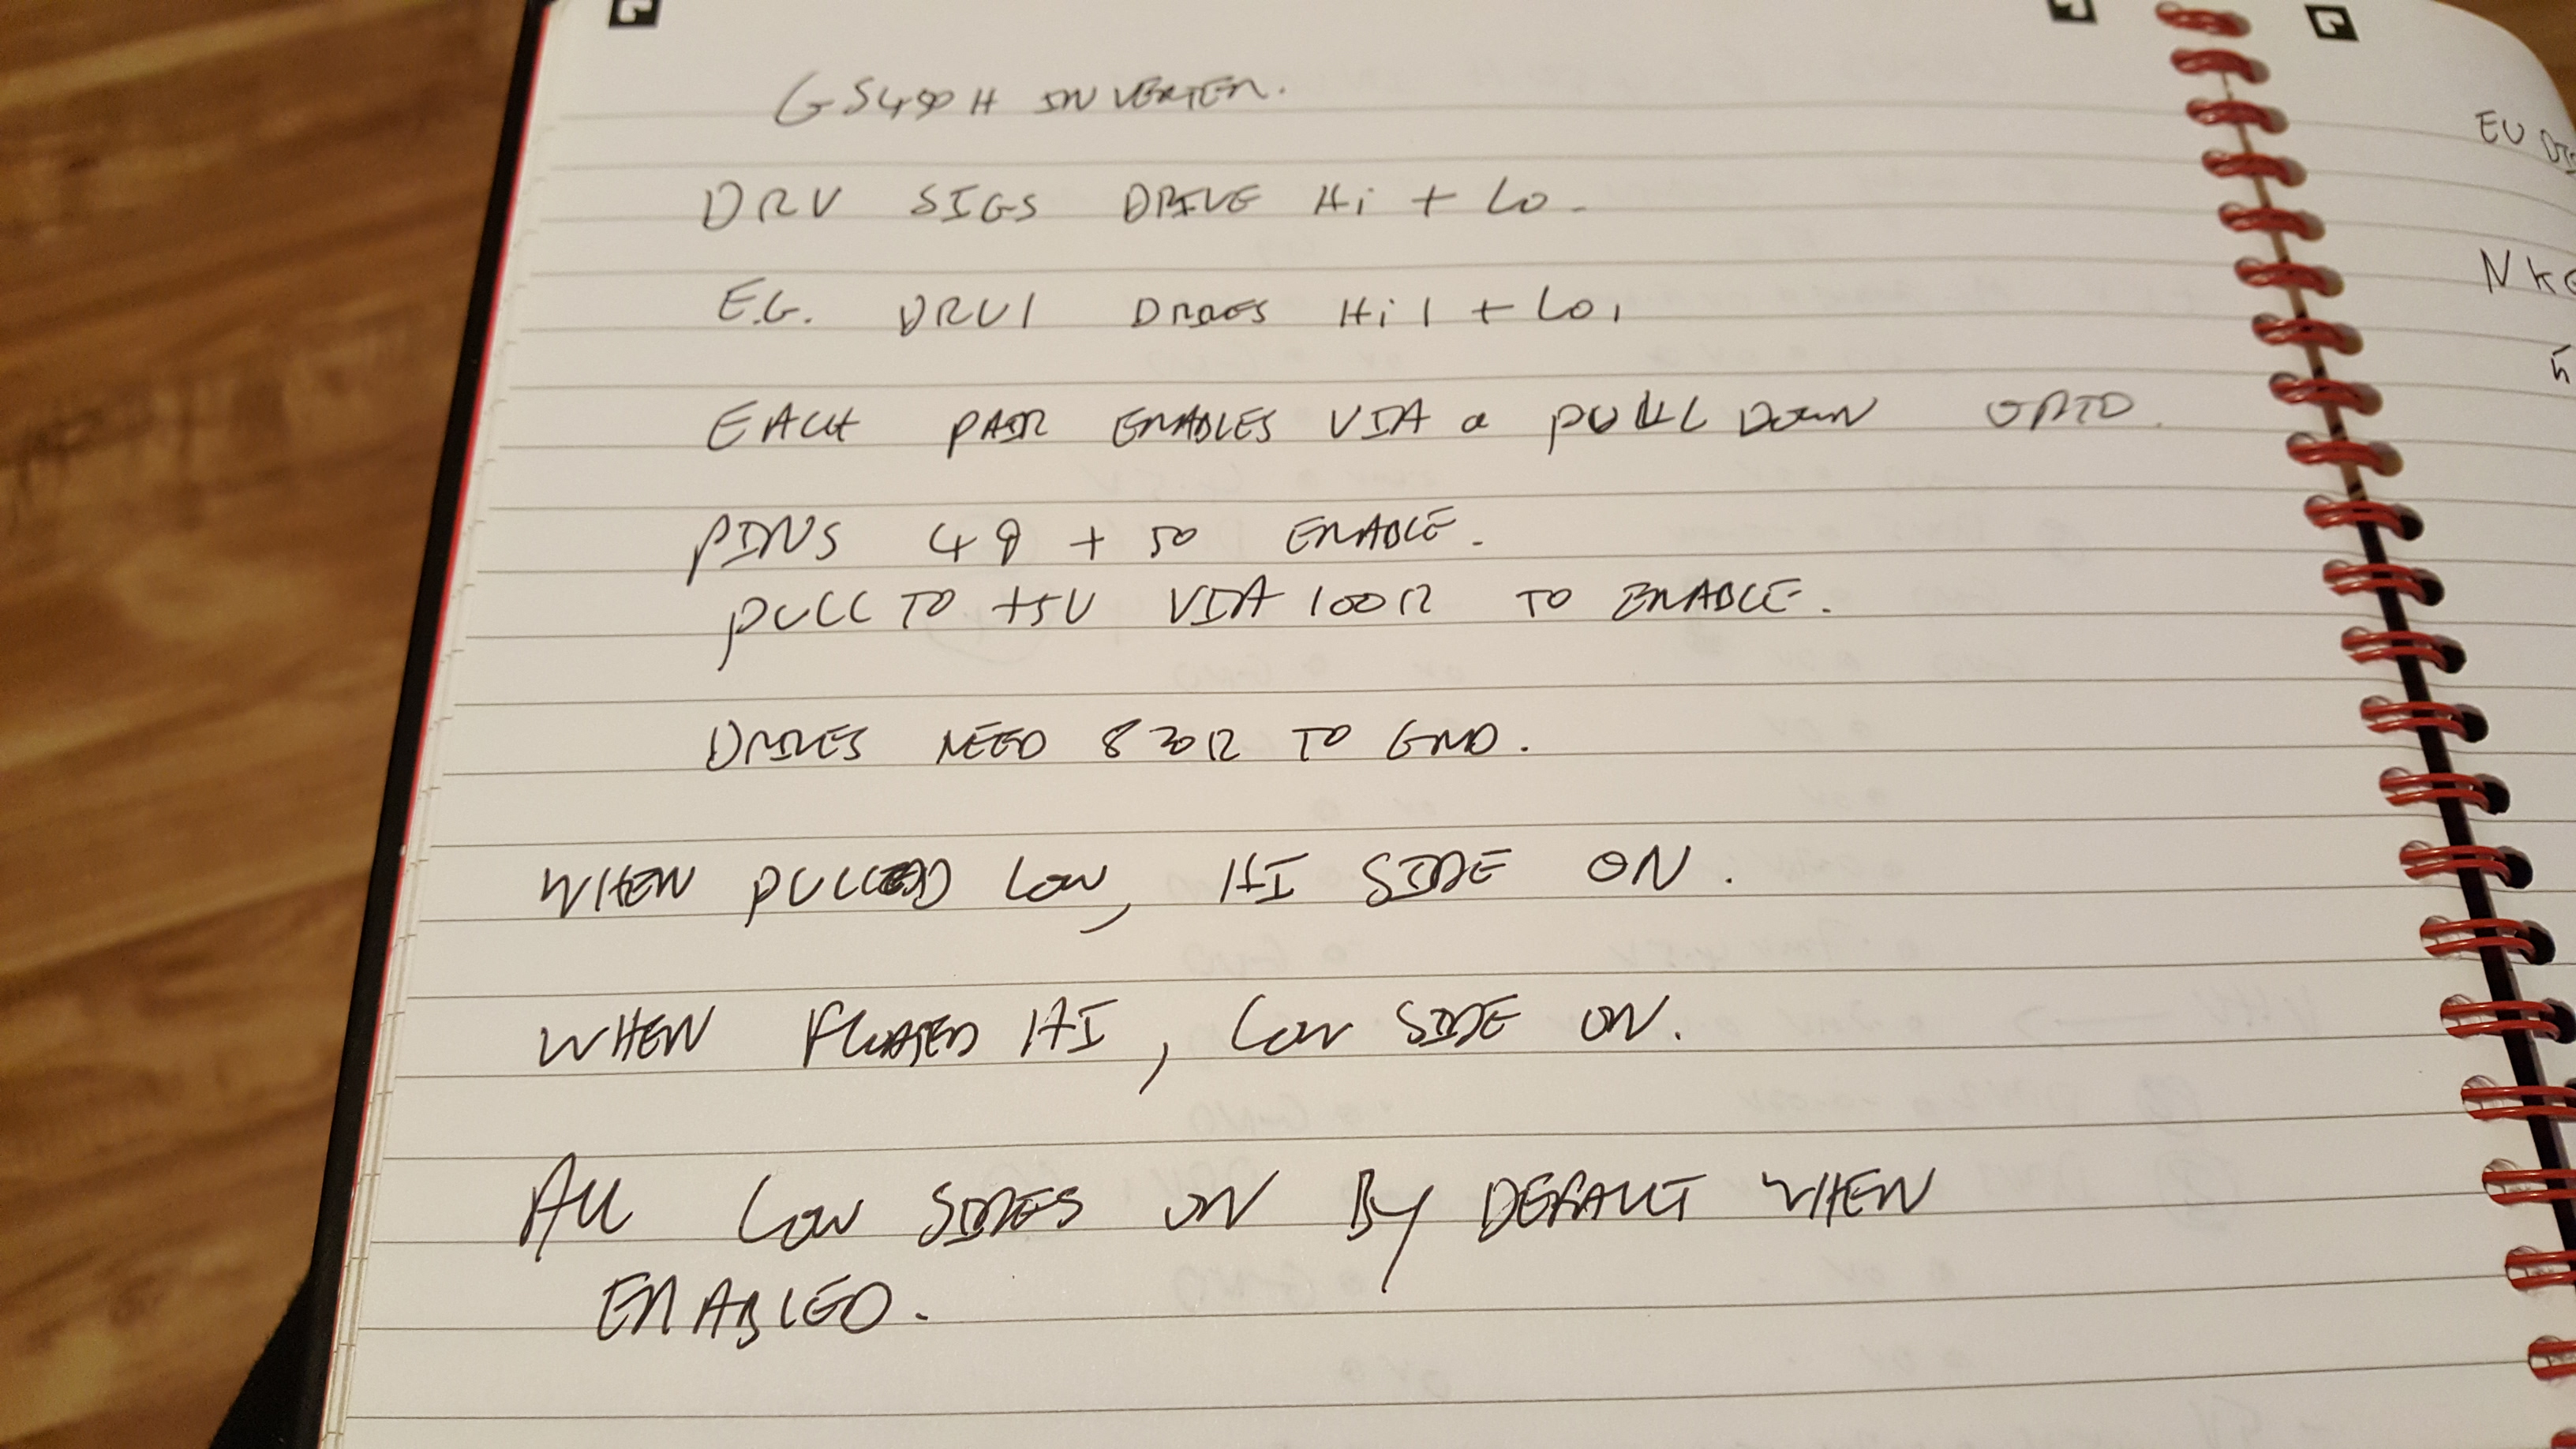 GS450H INVERTER.
DRV SIGS DRIVE Hi + Lo.
E.G. DRV1 DRIVES Hi1 + Lo1
EACH PAIR ENABLES VIA a PULL DOWN OPTO.
PINS 49 + 50 ENABLE.
PULL TO +5V VIA 100Ω TO ENABLE.
DRIVES NEED 820Ω TO GND.
WHEN PULLED LOW, HI SIDE ON.
WHEN FLOATED HI, LOW SIDE ON.
ALL LOW SIDES ON BY DEFAULT WHEN
ENABLED.
EU